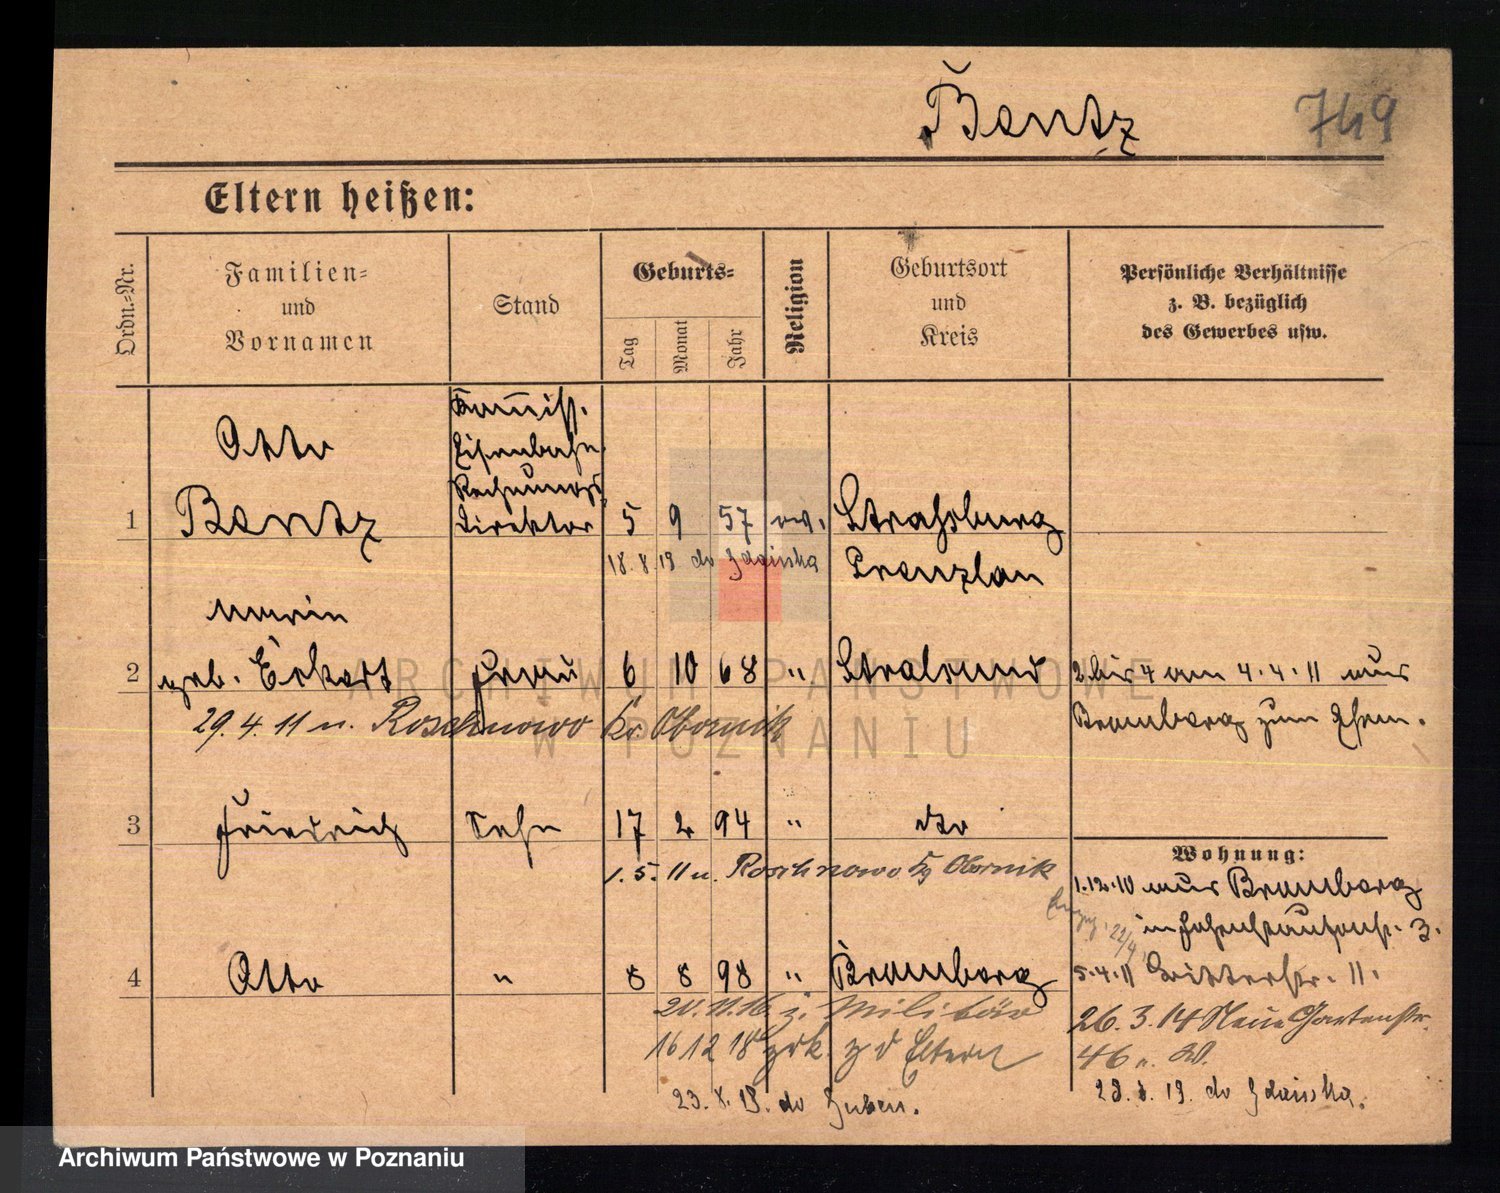 Bentz
749
Eltern heißen:
Ordn.-Nr.
Familien-
und
Vornamen
Stand
Geburts-
Tag
Monat
Jahr
Religion
Geburtsort
und
Kreis
Persönliche Verhältnisse
z. B. bezüglich
des Gewerbes usw.
Kommiss.
Eisenbahn
Rechnungs
Direktor
Otto
1 Bentz 5 9 57 ev. Strasburg
18.8.19 do Gdańska Prenzlau
Marie
2 geb. Eckert Frau 6 10 68 " Stralsund 2 bis 4 am 4.4.11 aus
29.4.11 n. Roschnowo Kr. Obornik Bromberg zum Ehem.
3 Friedrich Sohn 17 2 94 " dto
Wohnung:
1.5.11 n. Roschnowo Kr Obornik
1.12.10 aus Bromberg
in Hohenzollernstr. 3.
4 Otto " 8 8 98 " Bromberg 5.4.11 Ritterstr. 11.
21.11.16 z. Militär 26.3.14 Neue Gartenstr.
16 12 18 zrk. z d Eltern 46 n. W.
23.8.19. do Guben. 28.8.19. do Gdańska.
ARCHIWUM PAŃSTWOWE
W POZNANIU
Archiwum Państwowe w Poznaniu